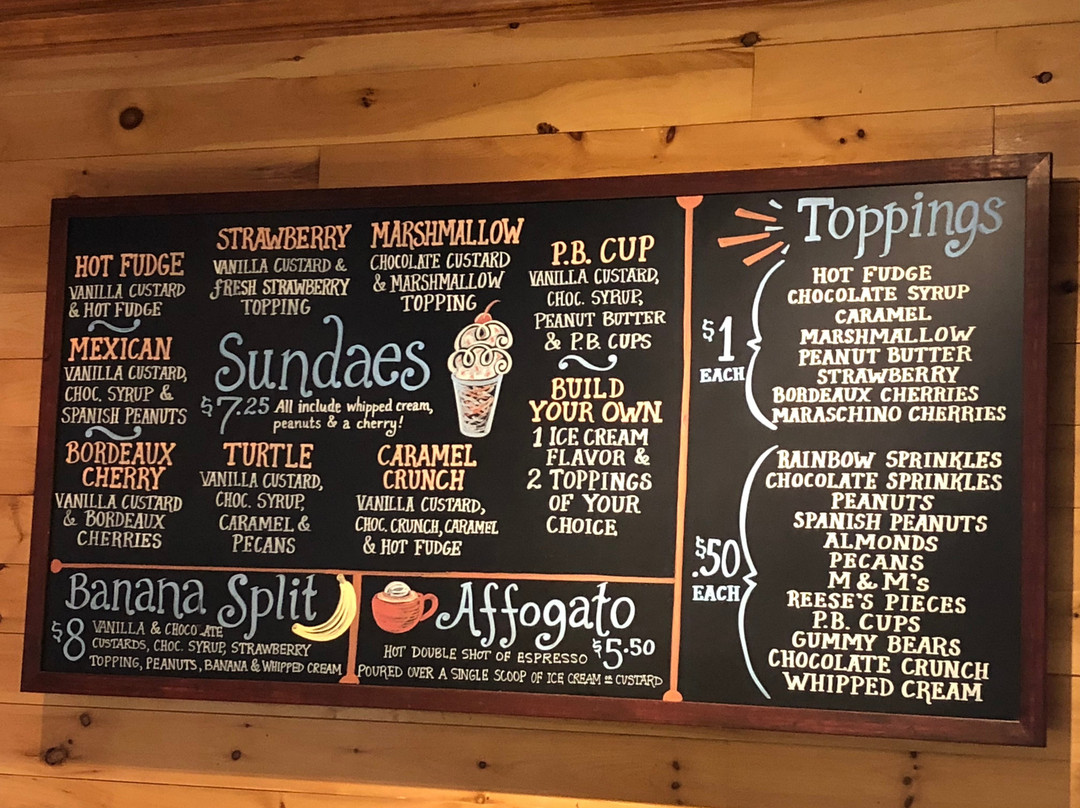 HOT FUDGE
VANILLA CUSTARD
& HOT FUDGE
MEXICAN
VANILLA CUSTARD,
CHOC. SYRUP &
SPANISH PEANUTS
BORDEAUX
CHERRY
VANILLA CUSTARD
& BORDEAUX
CHERRIES
STRAWBERRY
VANILLA CUSTARD &
FRESH STRAWBERRY
TOPPING
MARSHMALLOW
CHOCOLATE CUSTARD
& MARSHMALLOW
TOPPING
Sundaes
$7.25 All include whipped cream,
peanuts & a cherry!
TURTLE
VANILLA CUSTARD,
CHOC. SYRUP,
CARAMEL &
PECANS
CARAMEL
CRUNCH
VANILLA CUSTARD,
CHOC. CRUNCH, CARAMEL
& HOT FUDGE
P.B. CUP
VANILLA CUSTARD,
CHOC. SYRUP,
PEANUT BUTTER
& P.B. CUPS
BUILD
YOUR OWN
1 ICE CREAM
FLAVOR &
2 TOPPINGS
OF YOUR
CHOICE
Banana Split
$8 VANILLA & CHOCO ATE
CUSTARDS, CHOC. SYRUP, STRAWBERRY
TOPPING, PEANUTS, BANANA & WHIPPED CREAM
Affogato
HOT DOUBLE SHOT OF ESPRESSO $5.50
POURED OVER A SINGLE SCOOP OF ICE CREAM OR CUSTARD
Toppings
$1
EACH
HOT FUDGE
CHOCOLATE SYRUP
CARAMEL
MARSHMALLOW
PEANUT BUTTER
STRAWBERRY
BORDEAUX CHERRIES
MARASCHINO CHERRIES
$.50
EACH
RAINBOW SPRINKLES
CHOCOLATE SPRINKLES
PEANUTS
SPANISH PEANUTS
ALMONDS
PECANS
M & M's
REESE'S PIECES
P.B. CUPS
GUMMY BEARS
CHOCOLATE CRUNCH
WHIPPED CREAM